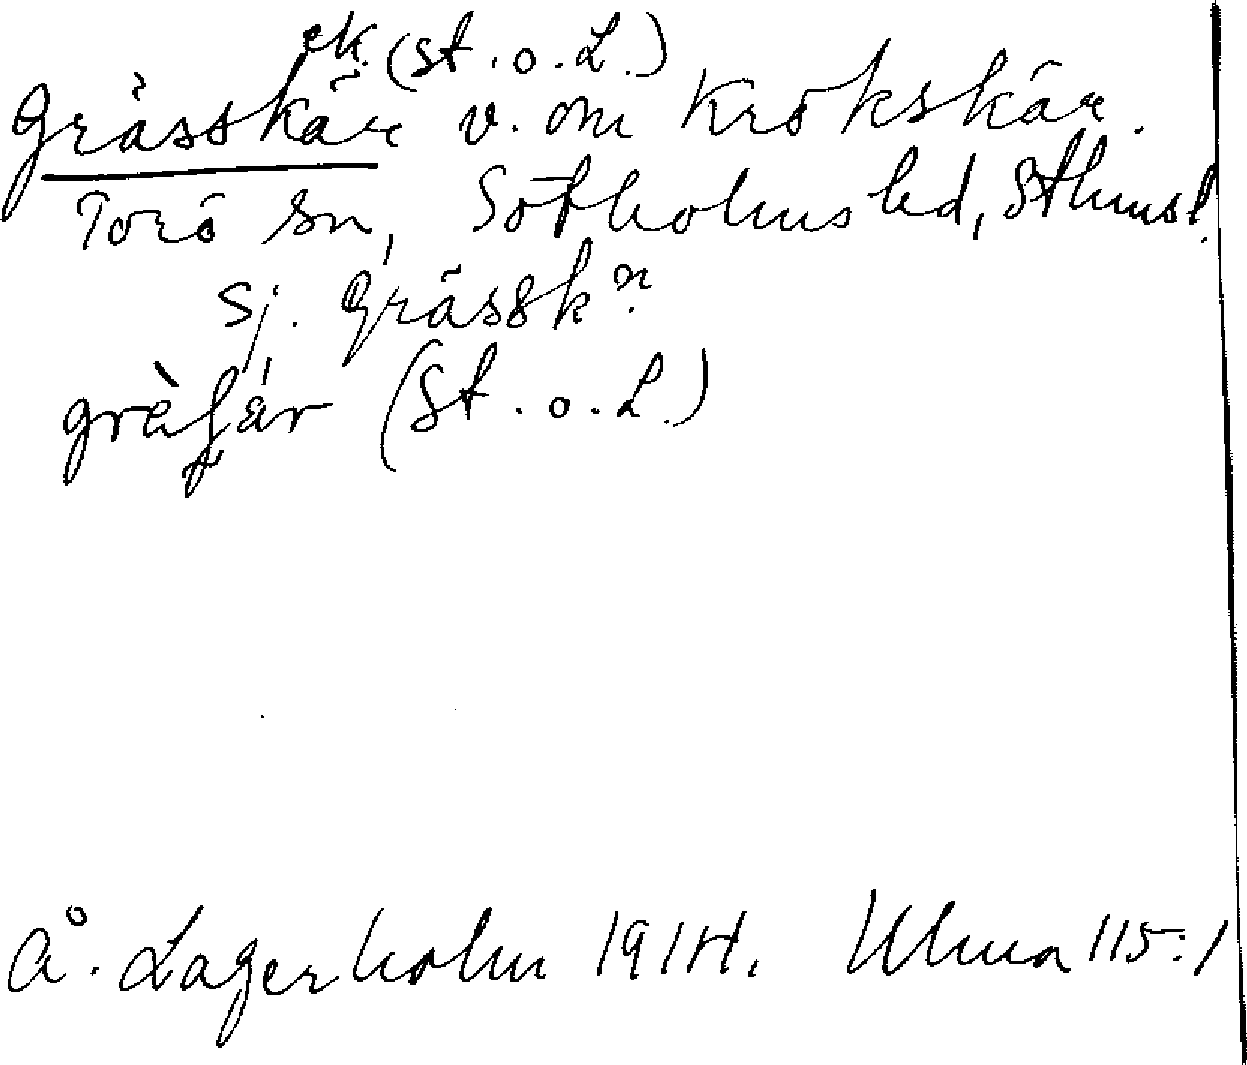 ek. (St. o. L.)
Grässkär v. om Krokskär.
Torö sn, Sotholms hd, Sthmsl.
Sj. Grässkn
(St. o. L.)
Å. Lagerholm 1914. Ulma 115:1